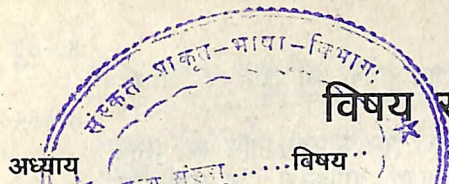 संस्कृत-प्राकृत-भाषा-विभागः
विषय
अध्याय
विषय